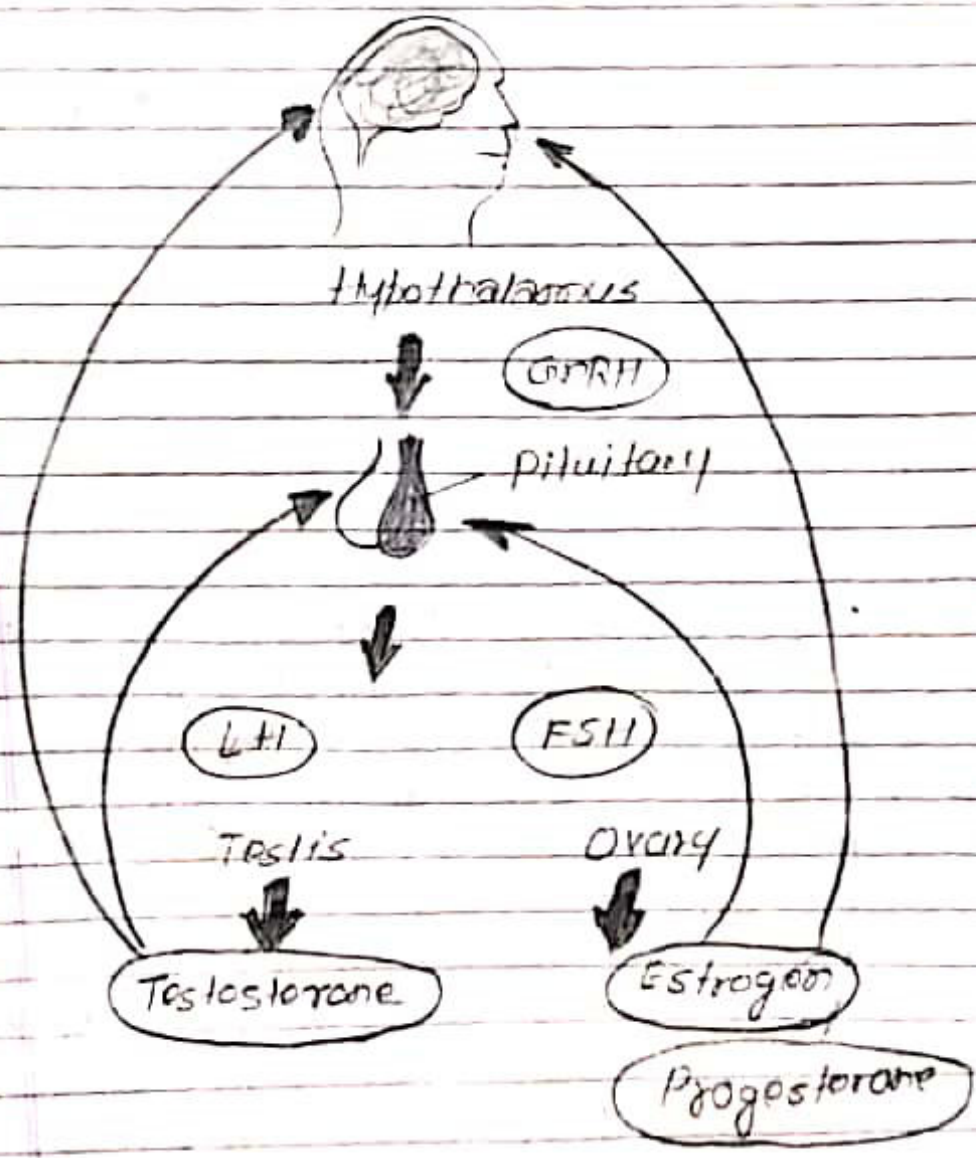 Hypothalamus
GnRH
Pituitary
LH
FSH
Testis
Ovary
Testosterone
Estrogen
Progesterone